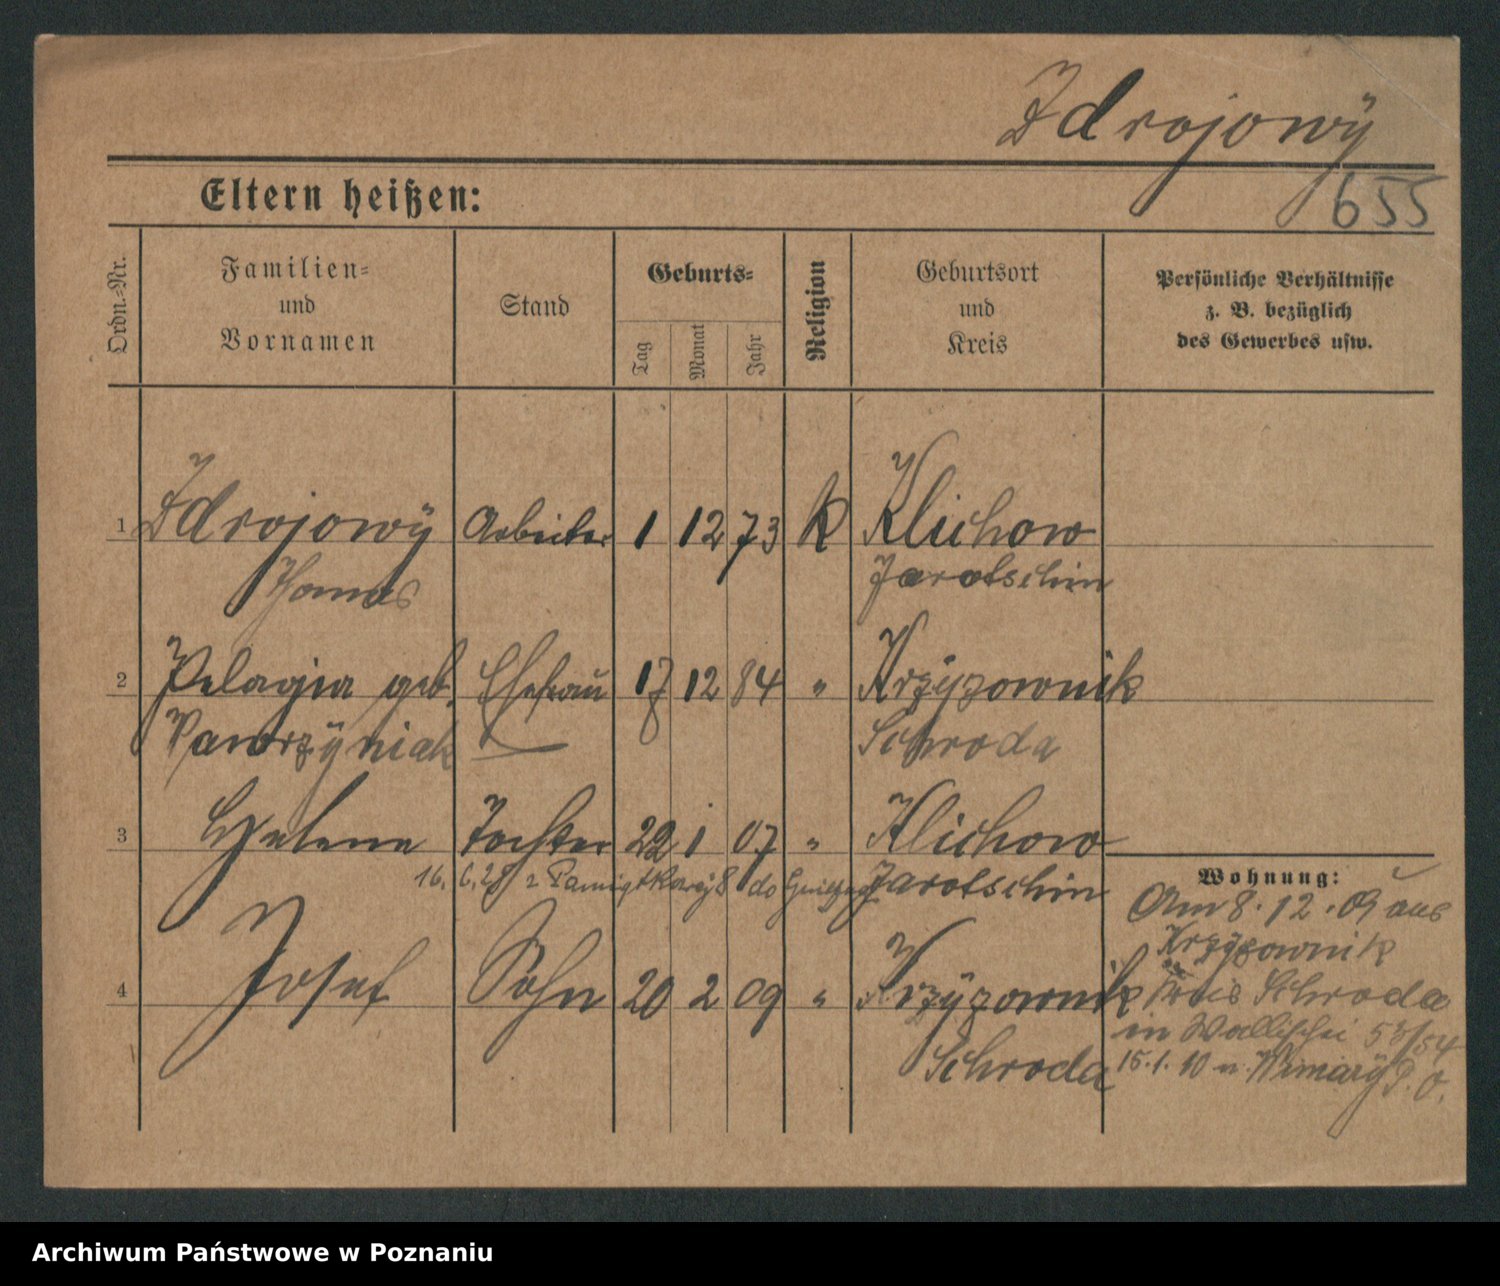 Zdrojowÿ
655
Eltern heißen:
Ordn.=Nr.
Familien=
und
Vornamen
Stand
Geburts=
Tag
Monat
Jahr
Religion
Geburtsort
und
Kreis
Persönliche Verhältnisse
z. B. bezüglich
des Gewerbes usw.
1 Zdrojowÿ Arbeiter 1 12 73 k Klichow
Thomas Jarotschin
2 Pelagia geb. Ehefrau 17 12 84 " Krzÿzownik
Wawrzÿniak Schroda
3 Helene Tochter 22 1 07 " Klichow
16. 6. 28 z 8 do Jarotschin
4 Josef Sohn 20 2 09 " Krzÿzownik
Schroda
Wohnung:
Am 8. 12. 09 aus
Krzÿzownik
Kreis Schroda
in Wallischei 53/54
15. 1. 10 n. Winiarÿ P. O.
Archiwum Państwowe w Poznaniu